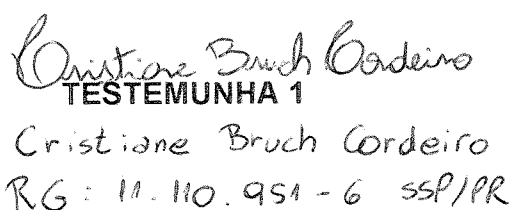 Cristiane Bruch Cordeiro
TESTEMUNHA 1
Cristiane Bruch Cordeiro
RG: 11.110.951-6 SSP/PR